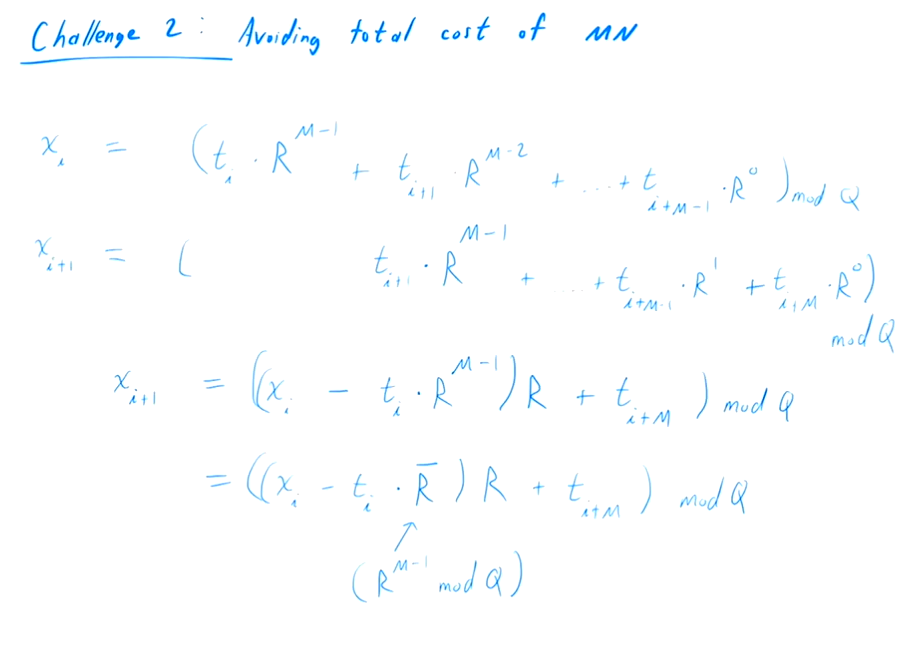 Challenge 2 : Avoiding total cost of MN
x_i = (t_i · R^{M-1} + t_{i+1} · R^{M-2} + ... + t_{i+M-1} · R^0) mod Q
x_{i+1} = ( t_{i+1} · R^{M-1} + ... + t_{i+M-1} · R^1 + t_{i+M} · R^0)
mod Q
x_{i+1} = ((x_i - t_i · R^{M-1}) R + t_{i+M}) mod Q
= ((x_i - t_i · R̅) R + t_{i+M}) mod Q
↑
(R^{M-1} mod Q)